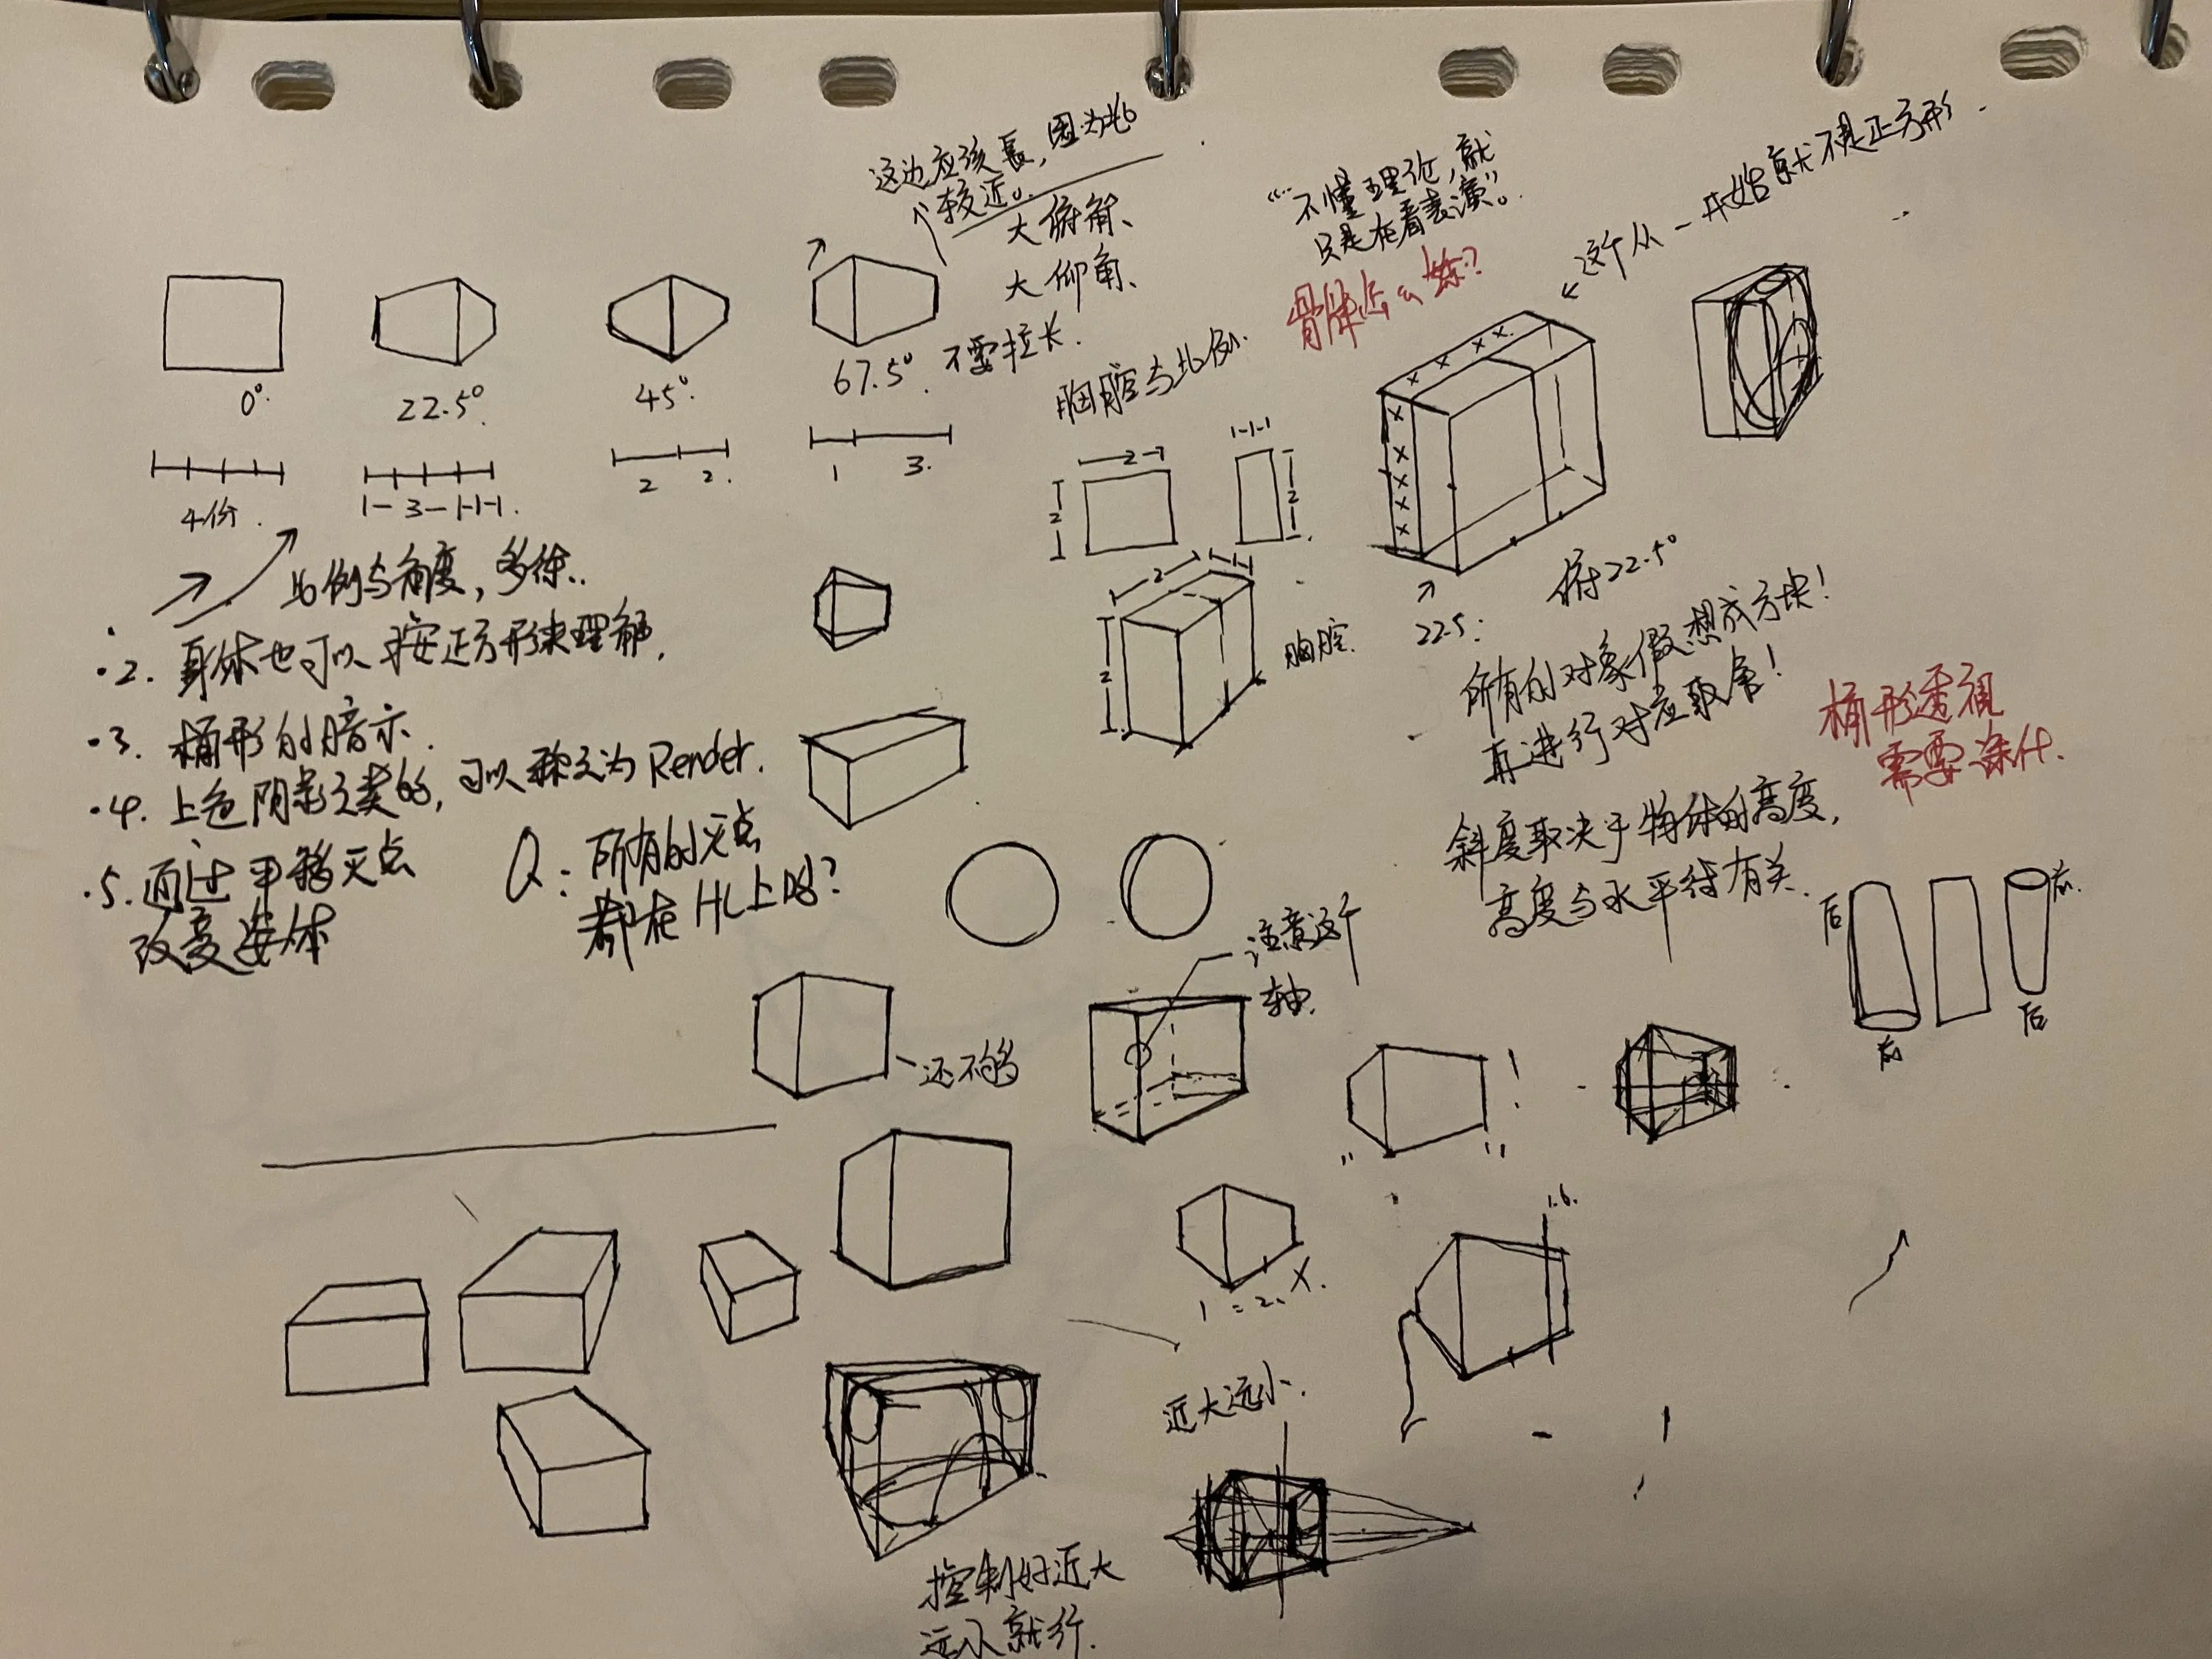 这边应该長,因为比
较近。
大俯角、
大仰角、
不要拉长.
“不懂理论,就
只是在看表演”。
骨骼怎么练?
这个从一开始就不是正方形.
0°.
22.5°.
45°
67.5°.
4份.
1-3-1-1-1.
2 2.
1 3.
胸腔与比例.
2
1-1-1
2
2
2
1-1-1
2
胸腔.
22.5:
俯22.5°
比例与角度,多练..
·2. 身体也可以按正方形来理解.
·3. 桶形的暗示.
·4. 上色阴影之类的,可以称之为Render.
·5. 通过平移灭点
改变姿体
Q: 所有的灭点
都在HL上吗?
所有的对象假想成方块!
再进行对应取舍!
桶形透视
需要条件.
斜度取决于物体的高度,
高度与水平线有关.
后
前
前.
后
注意这个
轴.
还不够
!
1=2. X.
1.6.
近大远小.
控制好近大
远小就行.